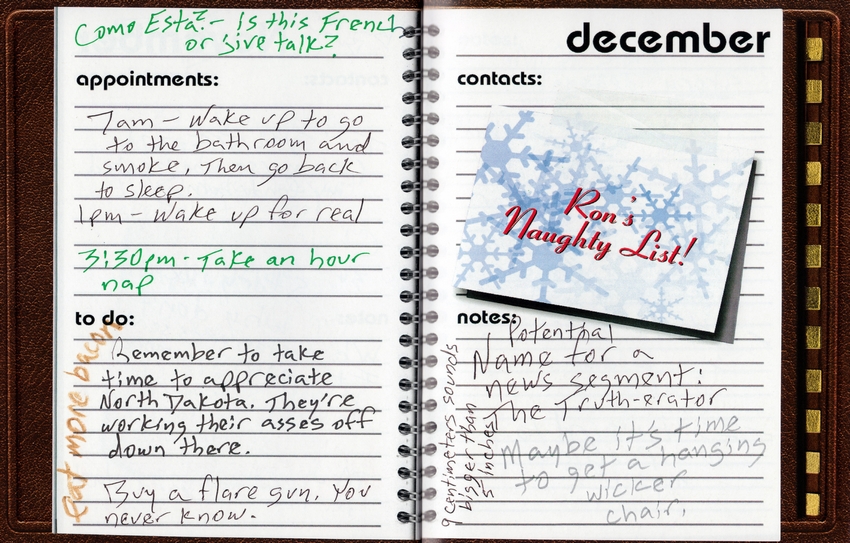 Como Esta? - Is this French
or jive talk?
appointments:
7am - Wake up to go
to the bathroom and
smoke, Then go back
to sleep.
1pm - Wake up for real
3:30pm - Take an hour
nap
to do:
Eat more bacon
Remember to take
time to appreciate
North Dakota. They're
working their asses off
down there.
Buy a flare gun. You
never know.
december
contacts:
Ron's
Naughty List!
notes:
Potential
Name for a
news segment:
The Truth-erator
9 centimeters sounds
bigger than
5 inches
Maybe it's time
to get a hanging
wicker
chair.